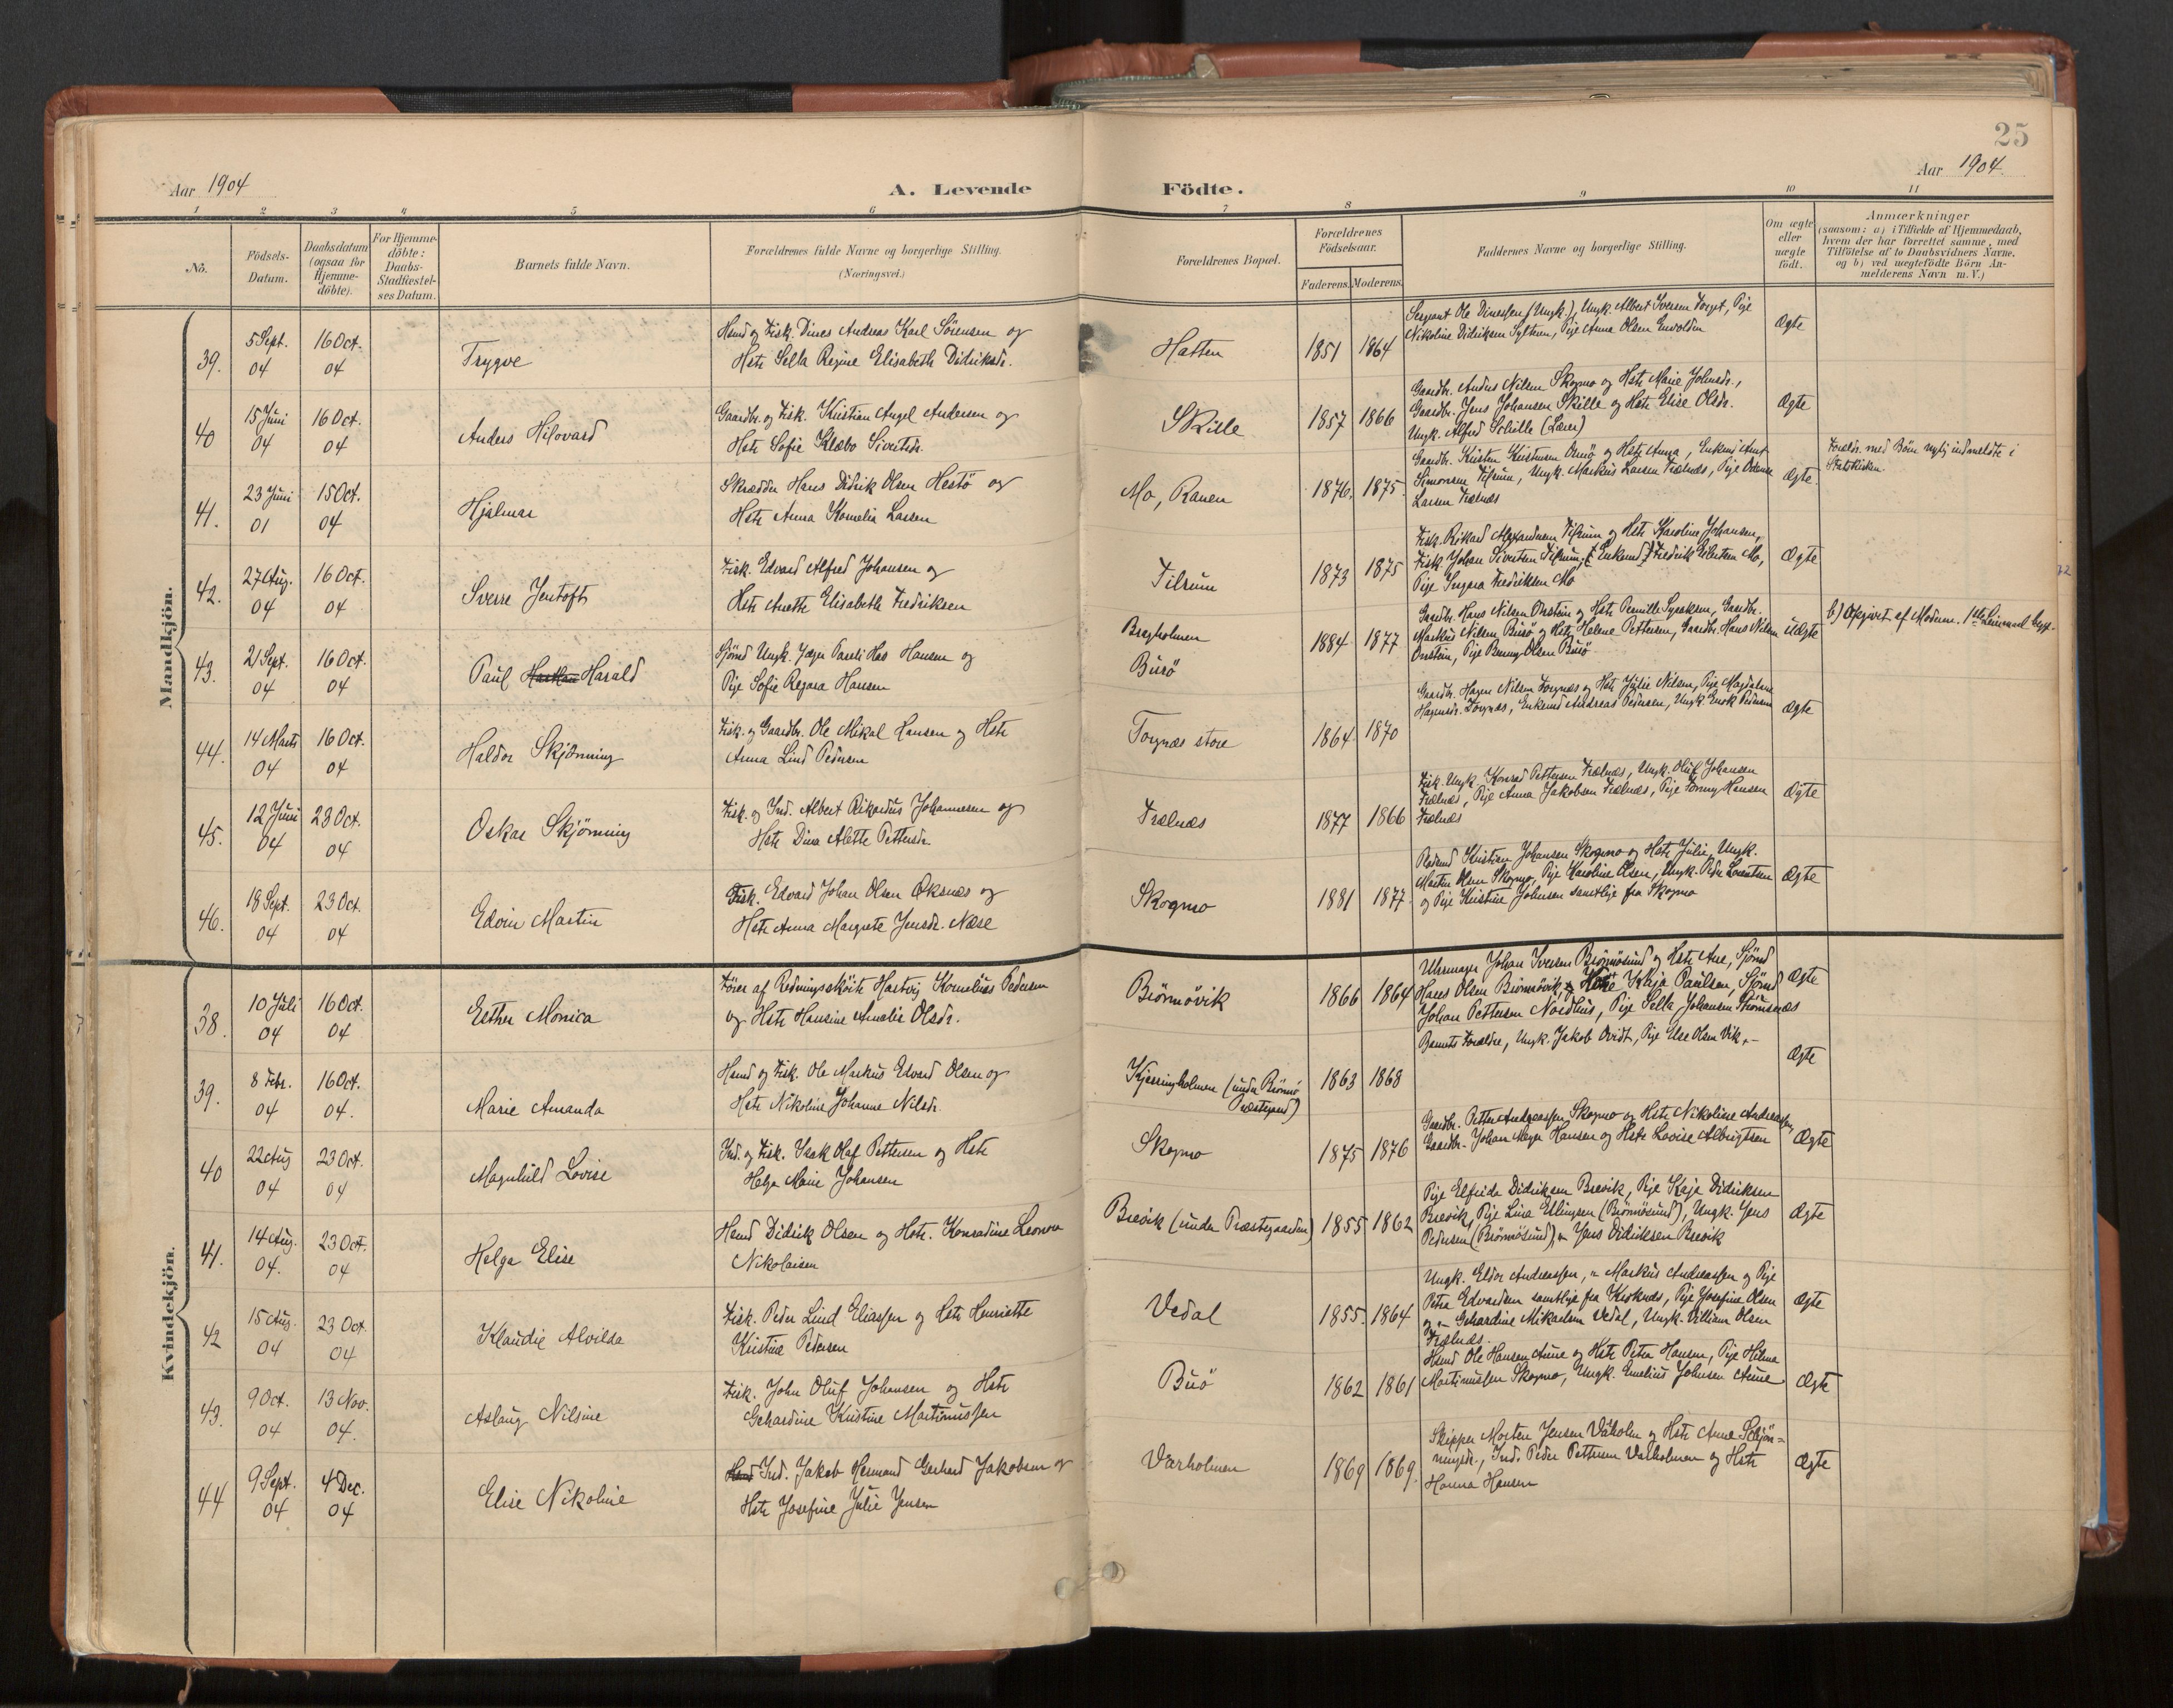 25
Aar 1904
A. Levende Födte.
Aar 1904.
1 2 3 4 5 6 7 8 9 10 11
No.
Födsels-
Datum.
Daabsdatum
(ogsaa for
Hjemme-
döbte).
For Hjemme-
döbte:
Daabs-
Stadfæstel-
ses Datum.
Barnets fulde Navn.
Forældrenes fulde Navne og borgerlige Stilling.
(Næringsvei.)
Forældrenes Bopæl.
Forældrenes
Födselsaar.
Faderens. Moderens.
Faddernes Navne og borgerlige Stilling.
Om ægte
eller
uægte
födt.
Anmærkninger
(saasom: a) i Tilfælde af Hjemmedaab,
hvem der har forrettet samme, med
Tilföielse af to Daabsvidners Navne,
og b) ved uægtefödte Börn An-
melderens Navn m. V.)
Mandkjön.
39. 5 Sept. 04 16 Oct. 04 Trygve
Hsmd og Fisk. Dines Andreas Karl Sörensen og
Hstr Sella Regine Elisabeth Didriksdr.
Hatten 1851 1864
Sergeant Ole Dinessen (Ungk.), Ungk. Albert Iversen Torget, Pige
Nikoline Didriksen Sylten, Pige Anna Olsen
Ægte
40 15 Juni 04 16 Oct. 04 Anders Hilovard
Gaardbr. og Fisk. Kristian Angel Andersen og
Hstr Sofie Klæbo Sivertsdr.
Skille 1857 1866
Gaardbr. Anders Nilsen Skogmo og Hstr Marie Johnsdr.,
Gaardbr. Jens Johansen Skille og Hstr Elise Olsdr.
Ungk. Alfred Schille (Lærer)
Ægte
41. 23 Juni 01 15 Oct. 04 Hjalmar
Skrædder Hans Didrik Olsen Hestö og
Hstr Anna Kornelia Larsen
Mo, Ranen 1876. 1875.
Gaardbr. Kristen Kristensen Osnö og Hstr Anna, Enkem. Amt
Simonsen Tilrum, Ungk. Markus Larsen Trælnæs, Pige
Larsen Trælnæs
Ægte.
Foreldr. med Börn nylig indmeldte i
Statskirken
42. 27 Aug. 04 16 Oct. 04 Sverre Jentoft
Fisk. Edvard Alfred Johansen og
Hstr Anette Elisabeth Fredriksen
Tilrum 1873 1875
Fisk. Rikard Alexandersen Tilrum og Hstr Karoline Johansen,
Fisk. Johan Sivertsen Tilrum, Enkemd Fredrik Eilertsen Mo,
Pige Ingara Fredriksen Mo
Ægte
43. 21 Sept. 04 16 Oct. 04 Paul Harald
Sjömd Ungk. Jæger Pareli Hansen og
Pige Sofie Regara Hansen
Bragholmen
Burö
1884 1877
Gaardbr. Hans Nilsen Onstein og Hstr Pernille Syraksen, Gaardbr.
Markus Nilsen Burö og Hstr Helene Pettersen, Gaardbr. Hans Nilsen
Onstein, Pige Benny Olsen Burö
uægte
b) Opgivet af Moderen. 1ste Leiermaal begge.
44. 14 Marts 04 16 Oct. 04 Haldor Skjönning
Fisk. og Gaardbr. Ole Mikal Hansen og Hstr
Anna Lind Pedersen
Torgnæs store 1864. 1870
Gaardbr. Hagen Nilsen Torgnæs og Hstr Julie Nilsen, Pige Magdalene
Hagensdr. Torgnæs, Enkemd Andreas Pedersen, Ungk. Enok Pedersen
Ægte
45. 12 Juni 04 23 Oct. 04 Oskar Skjönning
Fisk. og Ind. Albert Rikardus Johannesen og
Hstr Dina Alette Pettersdr.
Trælnæs 1877 1866
Fisk. Ungk. Konrad Pettersen Trælnæs, Ungk. Oluf Johansen
Trælnæs, Pige Anna Jakobsen Trælnæs, Pige Fanny Hansen
Trælnæs
Ægte
46. 18 Sept. 04 23 Oct. 04 Edvin Martin
Fisk. Edvard Johan Olsen Oksnæs og
Hstr Anna Margrete Jensdr. Næse
Skogmo 1881 1877.
Kristian Johansen Skogmo og Hstr Julie, Ungk.
Martin Olsen Skogmo, Pige Karoline Olsen, Ungk. Peder Lorentsen
og Pige Kristine Johnsen samtlige fra Skogmo
Ægte
Kvindekjön.
38. 10 Juli 04 16 Oct. 04 Esther Monica
Förer af Redningsskoite Hartvig Kornelius Pedersen
og Hstr Hansine Amalie Olsdr.
Brönnövik 1866 1864
Uhrmager Johan Iversen Brönnösund og Hstr Ane, Sjömd
Hans Olsen Brönnövik, Kaja Paulsen, Sjömd
Johan Pettersen Nordhus, Pige Sella Johansen Strömsnæs
Ægte
39. 8 Febr. 04 16 Oct. 04. Marie Amanda
Hsmd og Fisk. Ole Markus Edvard Olsen og
Hstr Nikoline Johanne Nilsdr.
Kjerringholmen (under Brönnö
Præstegaard)
1863 1868
Barnets Forældre, Ungk. Jakob Qvidt, Pige Else Olsen Vik, –
Ægte
40 22 Aug 04 23 Oct. 04 Magnhild Lovise
Ind. og Fisk. Isak Olaf Pettersen og Hstr
Helga Marie Johansen
Skogmo 1875 1876
Gaardbr. Petter Andreassen Skogmo og Hstr Nikoline Andreassen,
Gaardbr. Johan Meyer Hansen og Hstr Lovise Albrigtsen
Ægte
41. 14 Aug. 04. 23 Oct. 04 Helga Elise
Hsmd Didrik Olsen og Hstr. Konradine Leonora
Nikolaisen
Brevik (under Præstegaarden) 1855 1862
Pige Elfrida Didriksen Brevik, Pige Kaja Didriksen
Brevik, Pige Lina Ellingsen (Brönnösund), Ungk. Jens
Pedersen (Brönnösund), " Jens Didriksen Brevik
Ægte
42 15 Aug. 04 23 Oct. 04 Klaudie Alvilda
Fisk. Peder Lind Eliassen og Hstr Henriette
Kristine Pedersen
Vedal 1855. 1864
Ungk. Eldor Andreassen, " Markus Andreassen og Pige
Petra Edvardsen samtlige fra Kioknæs, Pige Josefine Olsen
og " Gehardine Mikaelsen Vedal, Ungk. Villiam Olsen
Trælnæs.
Ægte
43. 9 Oct. 04 13 Nov. 04. Aslaug Nilsine
Fisk. John Oluf Johansen og Hstr
Gehardine Kristine Martinussen
Burö 1862 1861
Hsmd Ole Hansen Aune og Hstr Petra Hansen, Pige Hilma
Martinussen Skogmo, Ungk. Emelius Johnsen Aune
Ægte
44 9 Sept. 04 4 Dec. 04 Elise Nikoline
Ind. Jakob Hermand Gerhard Jakobsen og
Hstr Josefine Julie Jensen
Værholmen 1869 1869.
Skipper Morten Jensen Vaholm og Hstr Anne Schjön-
ningsdr., Ind. Peder Pettersen Værholmen og Hstr
Hanna Hansen
Ægte